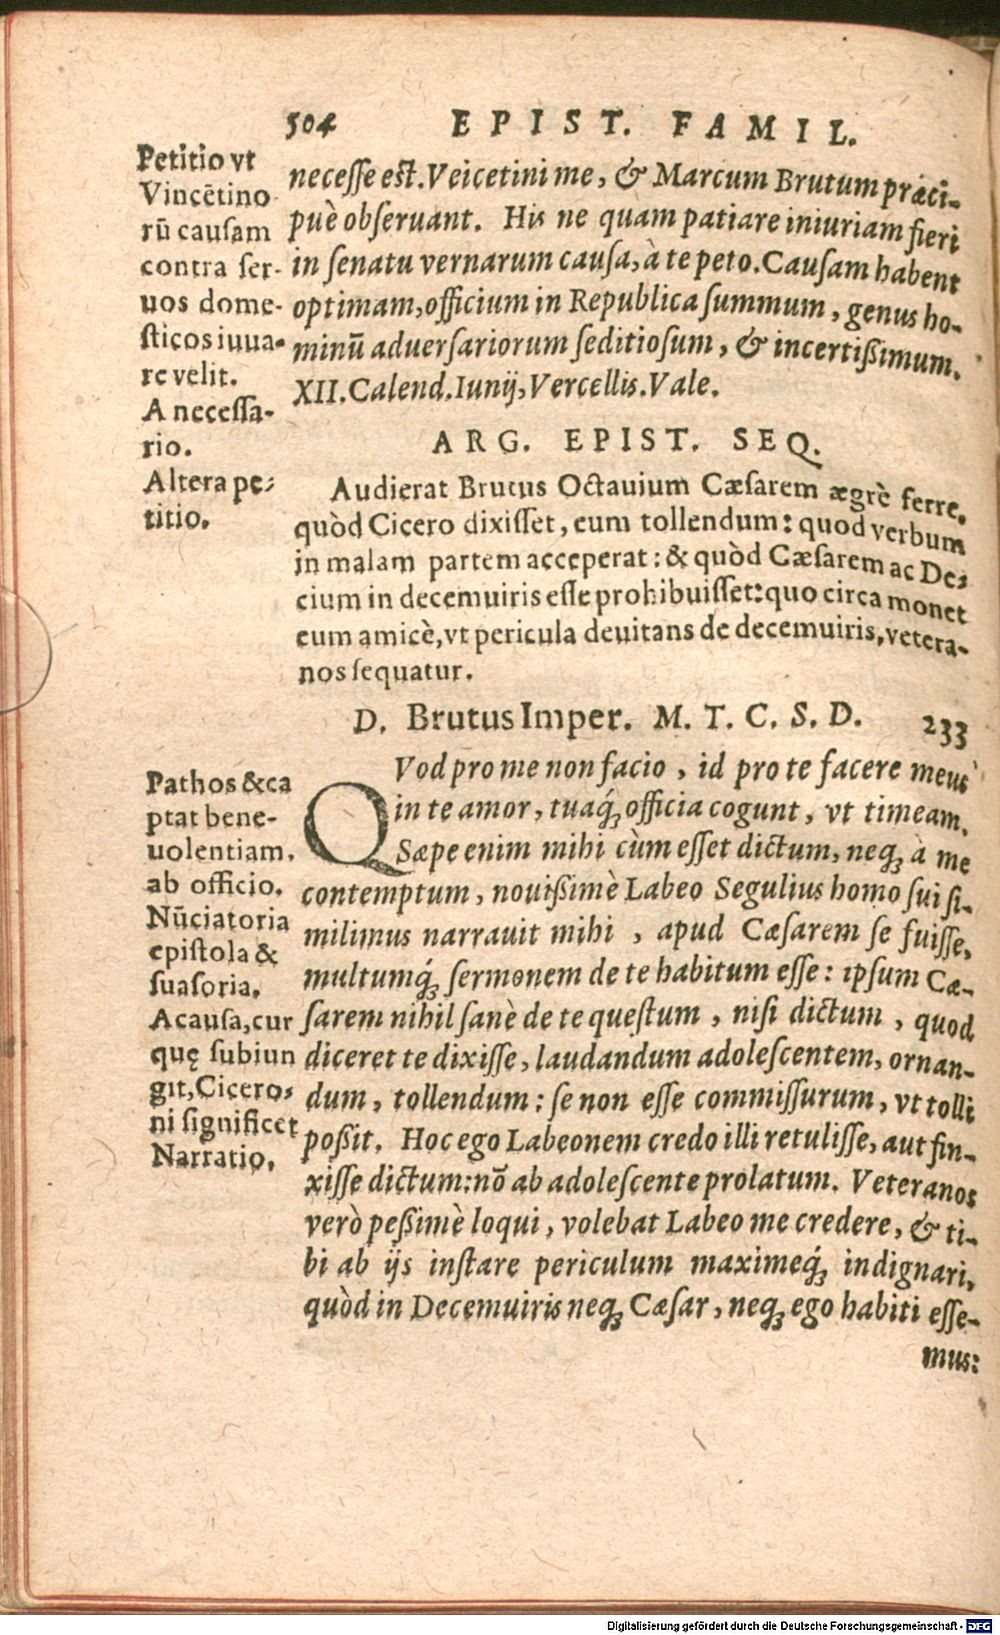 504 EPIST. FAMIL.
Petitio vt
Vincētino
rū causam
contra ser-
uos dome-
sticos iuua-
re velit.
A necessa-
rio.
Altera pe-
titio.
necesse est. Veicetini me, & Marcum Brutum præci-
puè obseruant. His ne quam patiare iniuriam fieri
in senatu vernarum causa, à te peto. Causam habent
optimam, officium in Republica summum, genus ho-
minū aduersariorum seditiosum, & incertißimum.
XII. Calend. Iunij, Vercellis. Vale.
ARG. EPIST. SEQ.
Audierat Brutus Octauium Cæsarem ægrè ferre,
quòd Cicero dixisset, eum tollendum: quod verbum
in malam partem acceperat: & quòd Cæsarem ac De-
cium in decemuiris esse prohibuisset: quo circa monet
eum amicè, vt pericula deuitans de decemuiris, vetera-
nos sequatur.
D. Brutus Imper. M. T. C. S. D. 233
Pathos & ca
ptat bene-
uolentiam,
ab officio.
Nūciatoria
epistola &
suasoria.
A causa, cur
quę subiun
git, Cicero-
ni significet
Narratio.
QVod pro me non facio, id pro te facere meus
in te amor, tuaq́; officia cogunt, vt timeam.
Sæpe enim mihi cùm esset dictum, neq; à me
contemptum, nouißimè Labeo Segulius homo sui si-
milimus narrauit mihi, apud Cæsarem se fuisse,
multumq́; sermonem de te habitum esse: ipsum Cæ-
sarem nihil sanè de te questum, nisi dictum, quod
diceret te dixisse, laudandum adolescentem, ornan-
dum, tollendum: se non esse commissurum, vt tolli
poßit. Hoc ego Labeonem credo illi retulisse, aut fin-
xisse dictum: nō ab adolescente prolatum. Veteranos
verò peßimè loqui, volebat Labeo me credere, & ti-
bi ab ijs instare periculum maximeq́; indignari,
quòd in Decemuiris neq; Cæsar, neq; ego habiti esse-
mus:
Digitalisierung gefördert durch die Deutsche Forschungsgemeinschaft - DFG